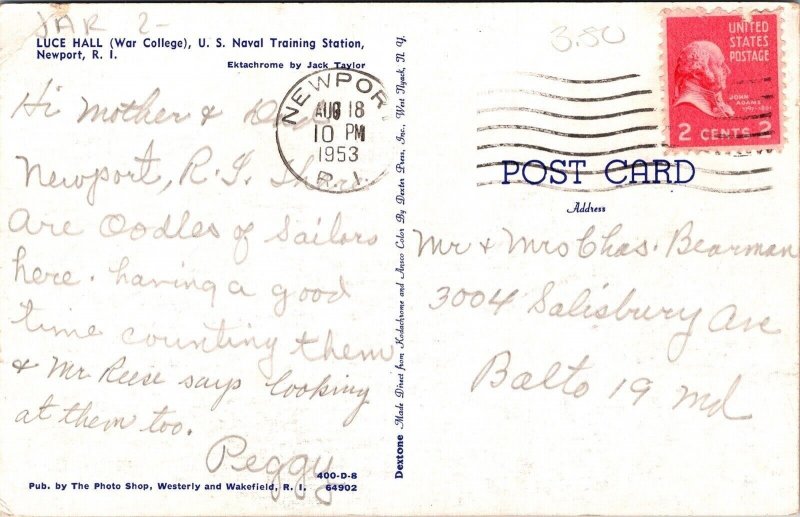 JAR 2-
3.50
LUCE HALL (War College), U. S. Naval Training Station,
Newport, R. I.
Ektachrome by Jack Taylor
Hi Mother & Dad
Newport, R.I. There
are oodles of sailors
here. having a good
time counting them
& Mr Reese says looking
at them too.
Peggy
400-D-8
Pub. by The Photo Shop, Westerly and Wakefield, R. I. 64902
Dextone Made Direct from Kodachrome and Ansco Color By Dexter Press, Inc., West Nyack, N. Y.
NEWPOR
AUG 18
10 PM
1953
R. I.
UNITED
STATES
POSTAGE
JOHN
ADAMS
2 CENTS 2
POST CARD
Address
Mr & Mrs Chas. Bearman
3004 Salisbury Ave
Balto 19 Md